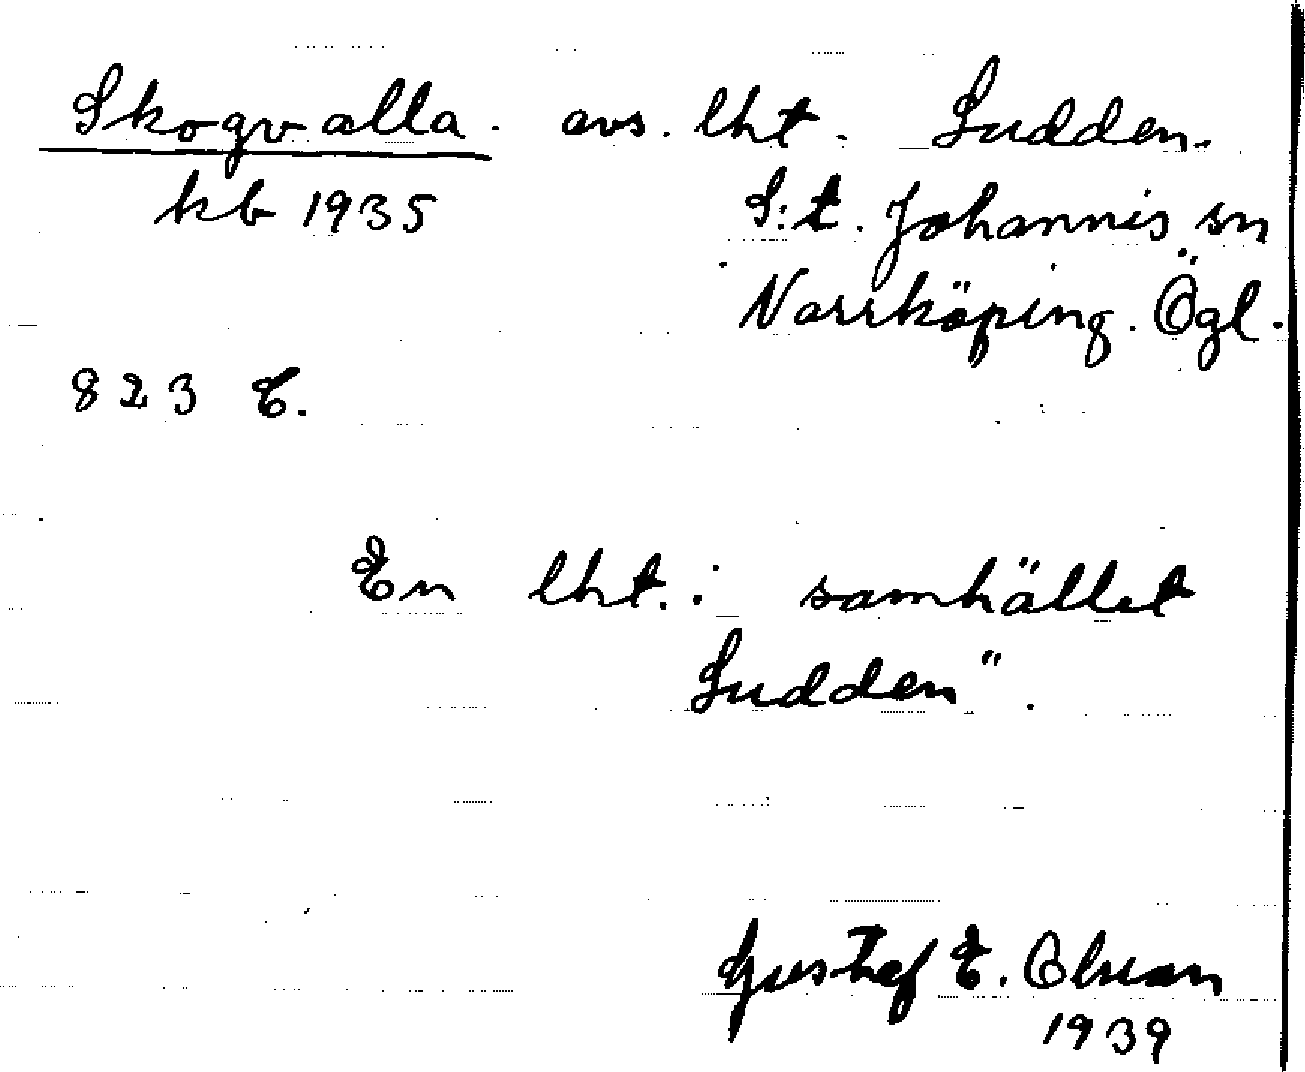 Skogvalla. avs. lht. Sudden.
kb 1935 S:t. Johannis sn
Norrköping. Ögl.
823 E.
En lht. i samhället
Sudden".
Gustaf E. Olsson
1939